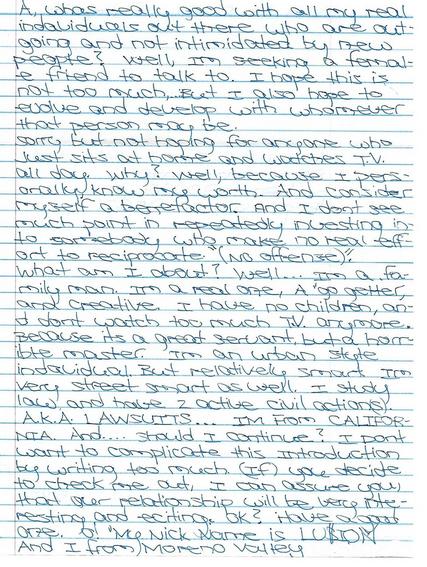 A, whas really good with all my real
individuals out there who are out-
going and not intimidated by new
people? Well, Im seeking a femal-
e friend to talk to. I hope this is
not too much...But I also hope to
evolve and develop with whomever
that person may be.
sorry but not hoping for anyone who
Just sits at home and watches T.V.
all day. Why? Well, because I pers-
onally know my worth. And consider
myself a benefactor. And I dont see
much point in repeatedly investing in-
to somebody who make no real eff-
ort to reciprocate. "(No offense)".
What am I about? Well... Im a fa-
mily man. Im a real one, A "go getter,
and creative. I have no children, an-
d dont watch too much T.V. anymore.
Because its a great servant, but a horr-
ible master. Im an urban style
individual. But relatively smart. Im
very street smart as well. I study
law, and have 2 active civil action(s).
A.K.A. LAWSUITS... IM FOM CALIFOR-
NIA. And.... should I continue? I dont
want to complicate this Introduction
by writing too much. (If) you decide
to check me out, I can assure you,
that our relationship will be very inte-
resting and eciting. OK? Have a good
one. "My Nick Name is
And I from) Moreno Valley